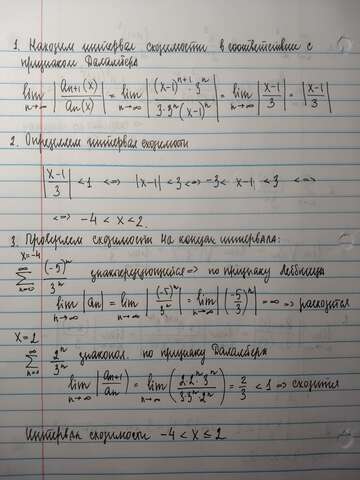 1. Находим интервал сходимости в соответствии с
признаком Даламбера
lim n→∞ |aₙ₊₁(x)/aₙ(x)| = lim n→∞ |(x-1)ⁿ⁺¹ · 3ⁿ / 3·3ⁿ(x-1)ⁿ| = lim n→∞ |x-1/3| = |x-1/3|
2. Определяем интервал сходимости
|x-1/3| < 1 <=> |x-1| < 3 <=> -3 < x-1 < 3 <=>
<=> -4 < x < 2.
3. Проверяем сходимость на концах интервала:
x=-4
∑ n=0 ∞ (-5)ⁿ/3ⁿ знакочередующийся => по признаку Лейбница
lim n→∞ |aₙ| = lim n→∞ |(-5)ⁿ/3ⁿ| = lim n→∞ |(-5/3)ⁿ| = ∞ => расходится
x=2
∑ n=0 ∞ 2ⁿ/3ⁿ знакопол. по признаку Даламбера
lim n→∞ |aₙ₊₁/aₙ| = lim n→∞ (2·2ⁿ·3ⁿ/3·3ⁿ·2ⁿ) = 2/3 < 1 => сходится
Интервал сходимости -4 < x ≤ 2